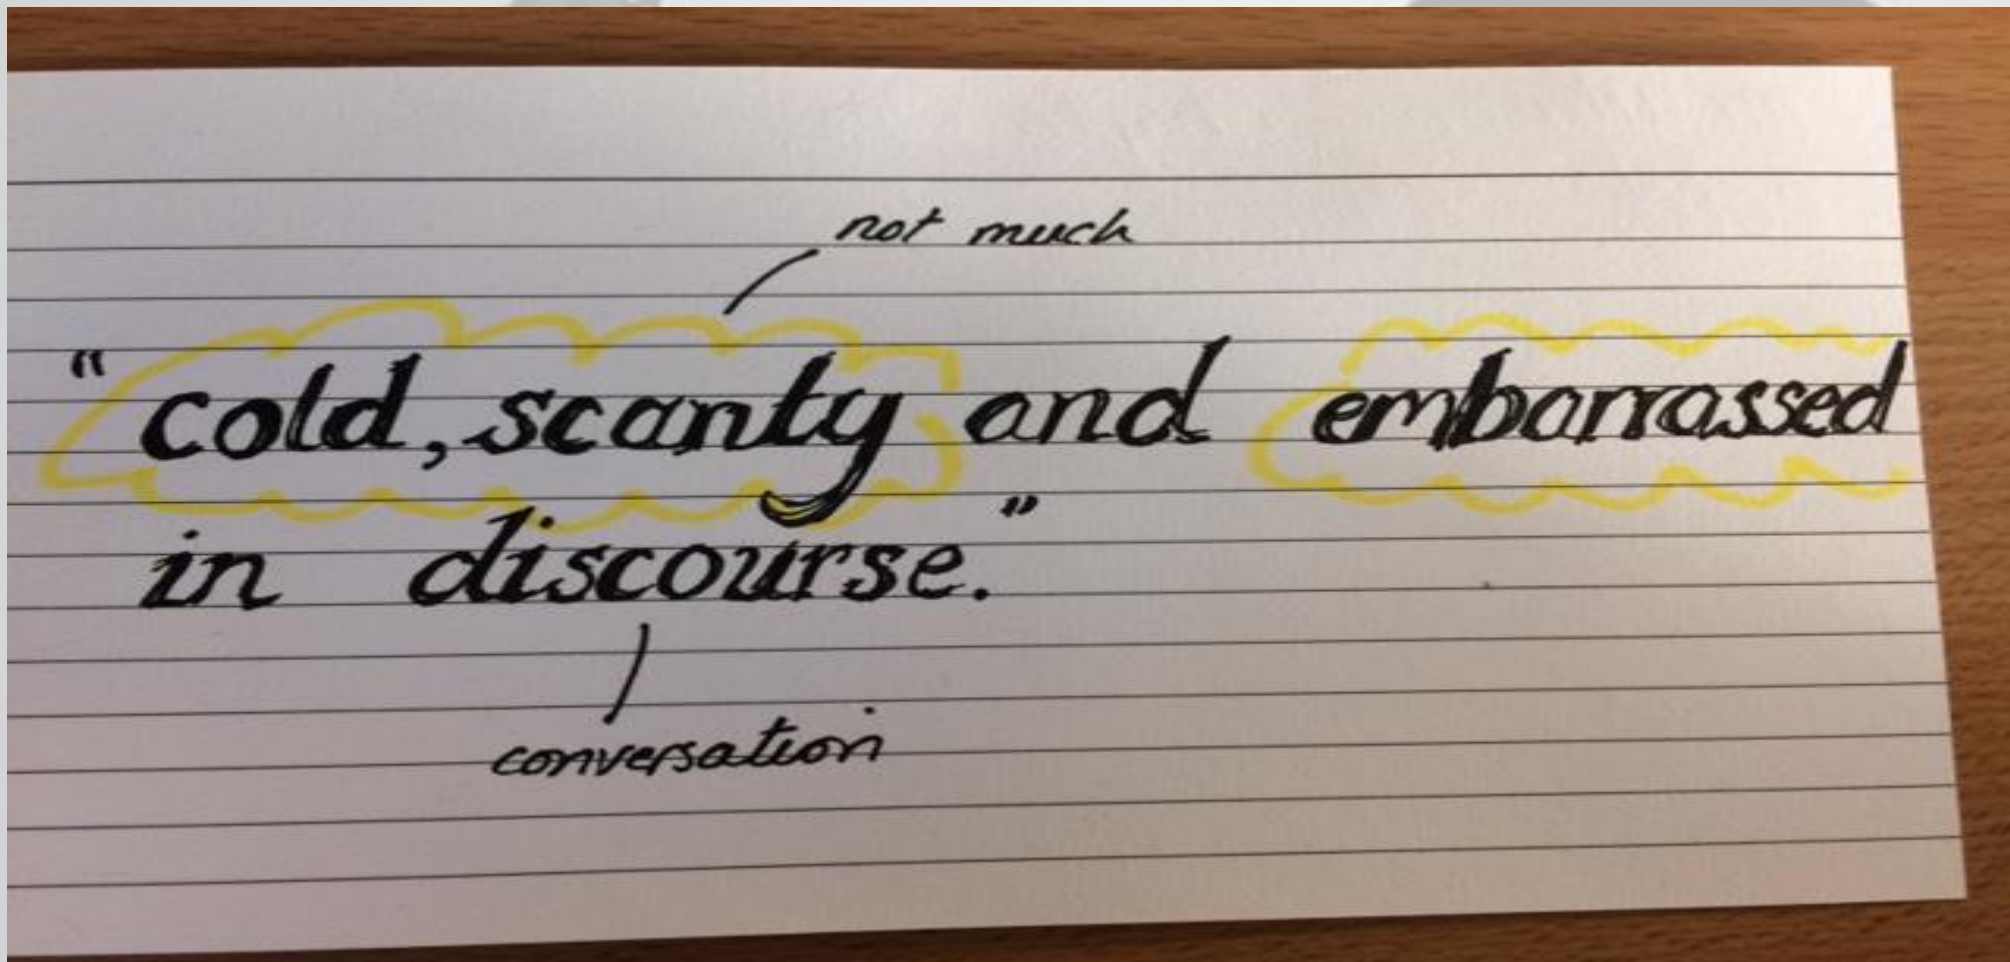 not much
“cold, scanty and embarrassed
in discourse.”
conversation